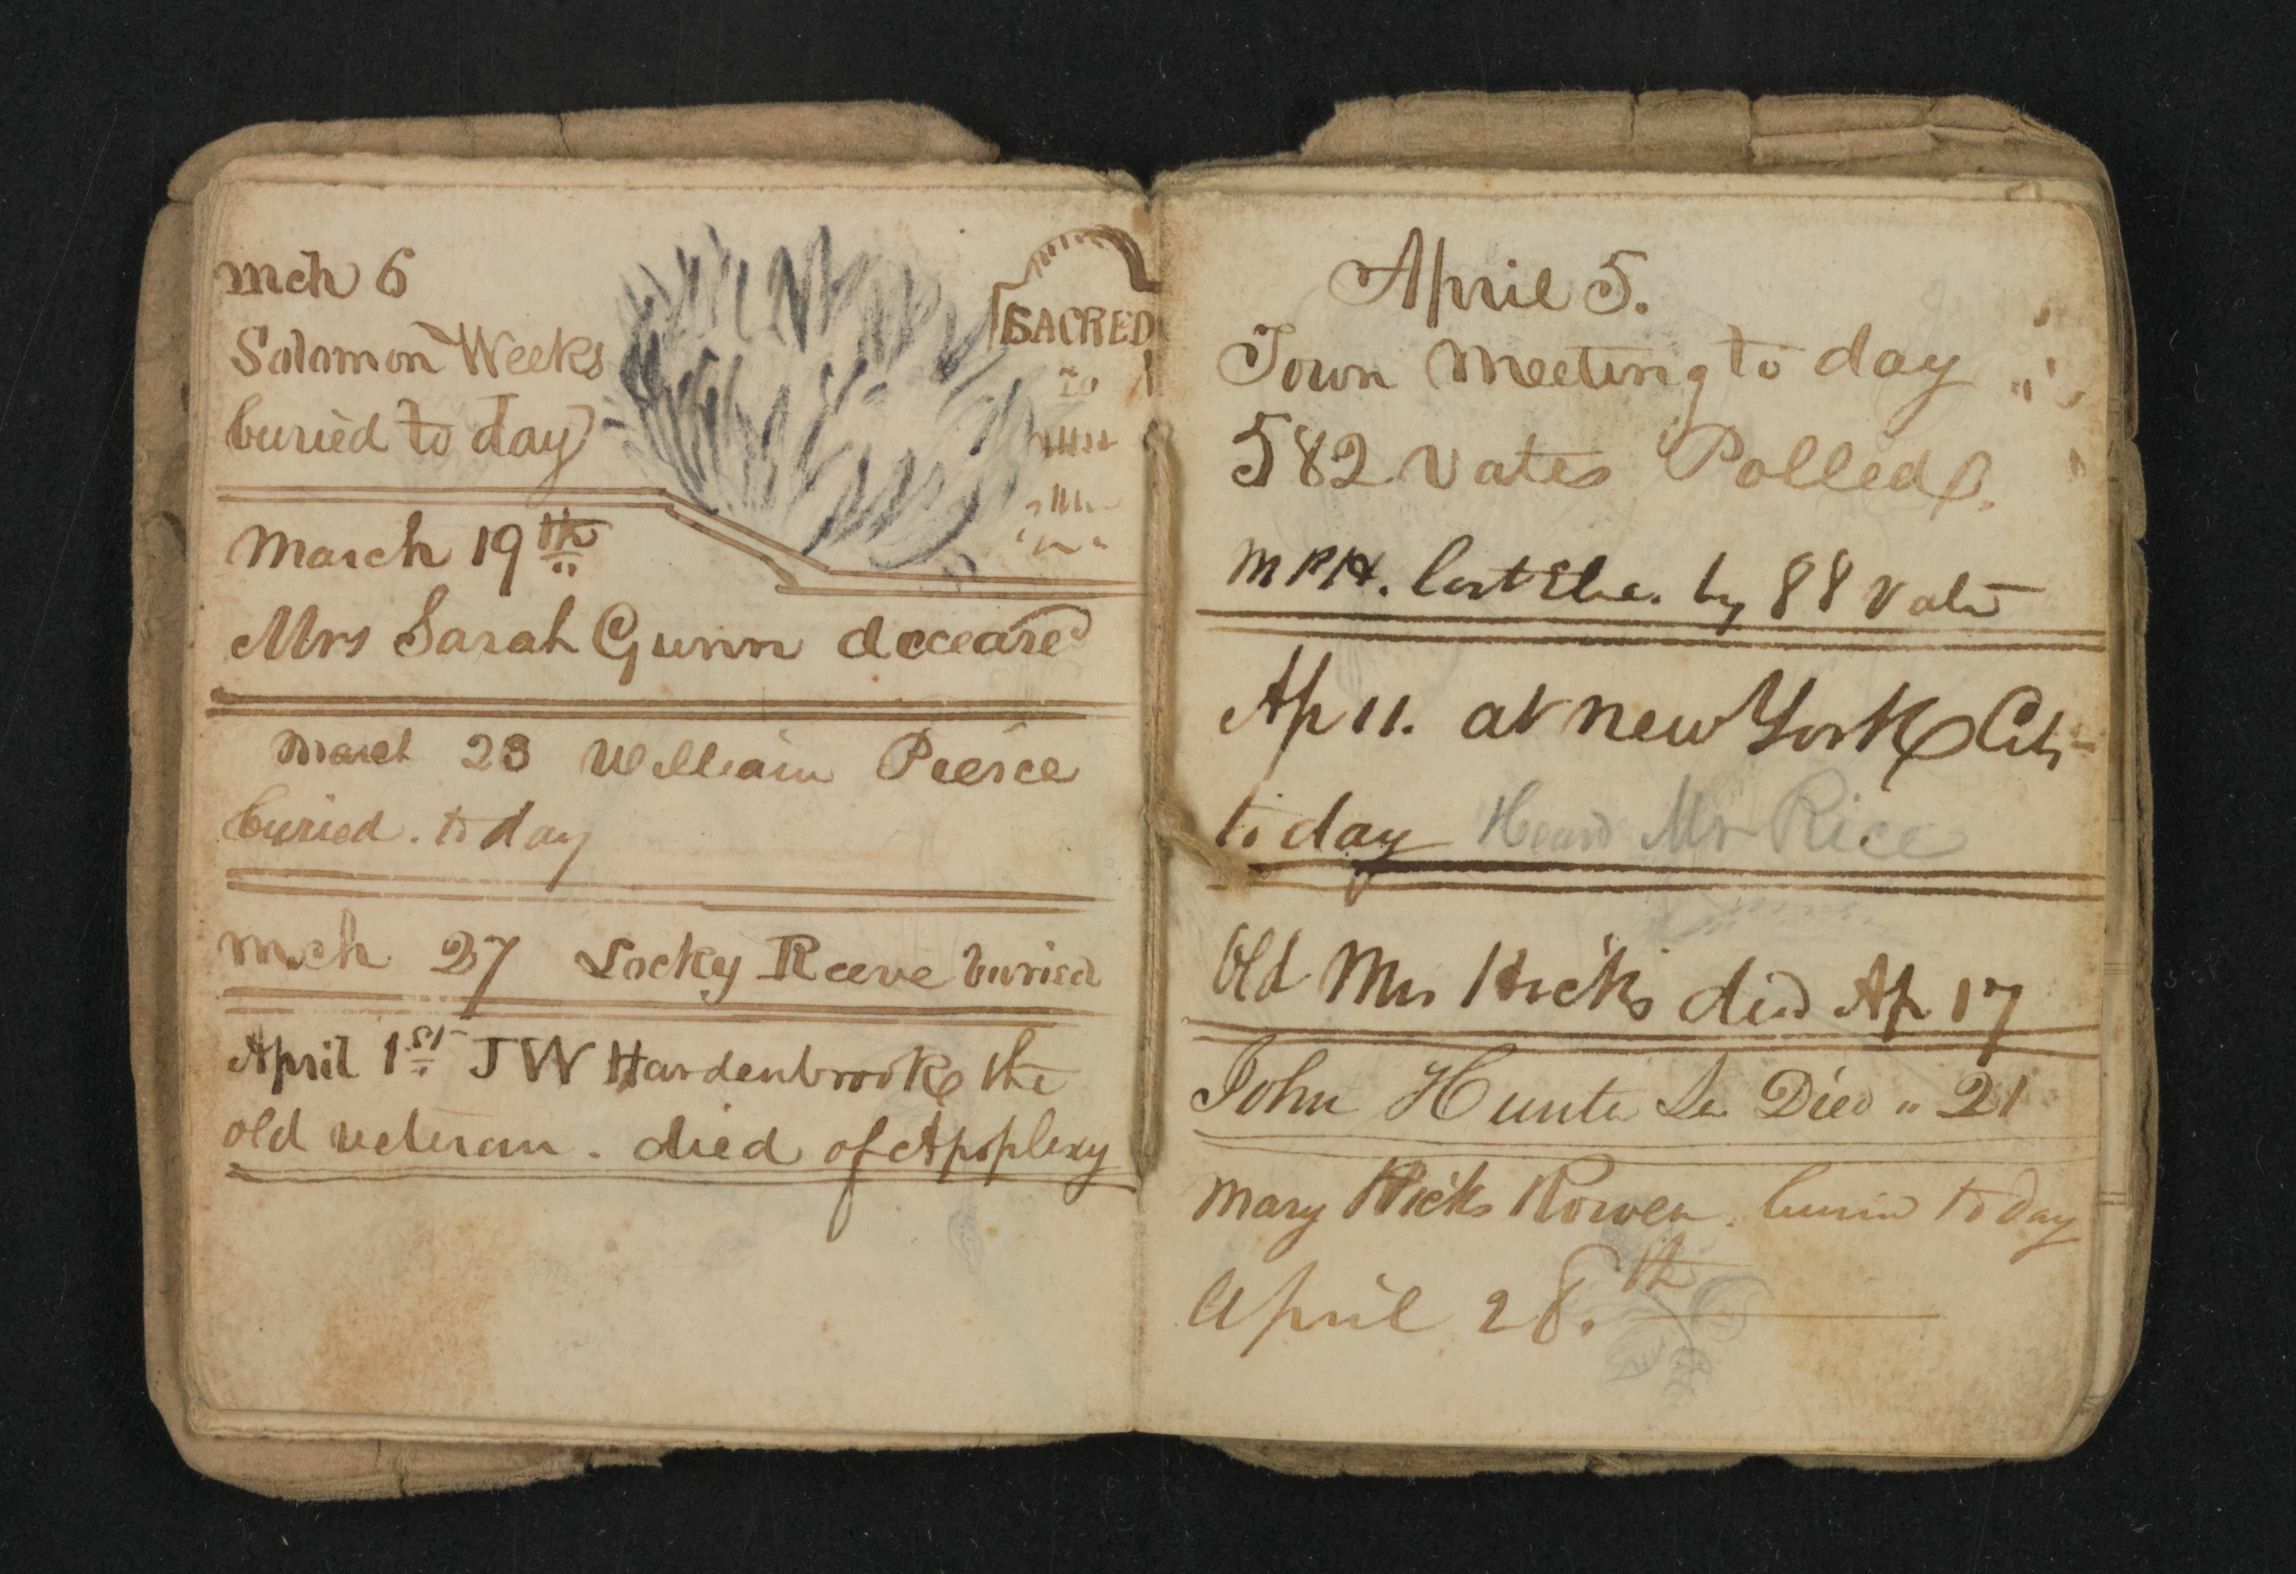 mch 6
Solomon Weeks
buried to day
SACRED
To
March 19th
Mrs Sarah Gunn deceased
March 23 William Pierce
buried. to day
Mch 27 Locky Reeve buried
April 1st J W Hardenbrook the
old veteran. died of Apoplexy
April 5.
Town Meeting to day
582 Votes Polled
M P H. lost Elec. by 88 Votes
Ap 11. at New York City
to day Heard Mr Rice
Old Mrs Hicks died Ap 17
John Hunter Died " 21
Mary Hicks Rowen. buried to day
April 28.th